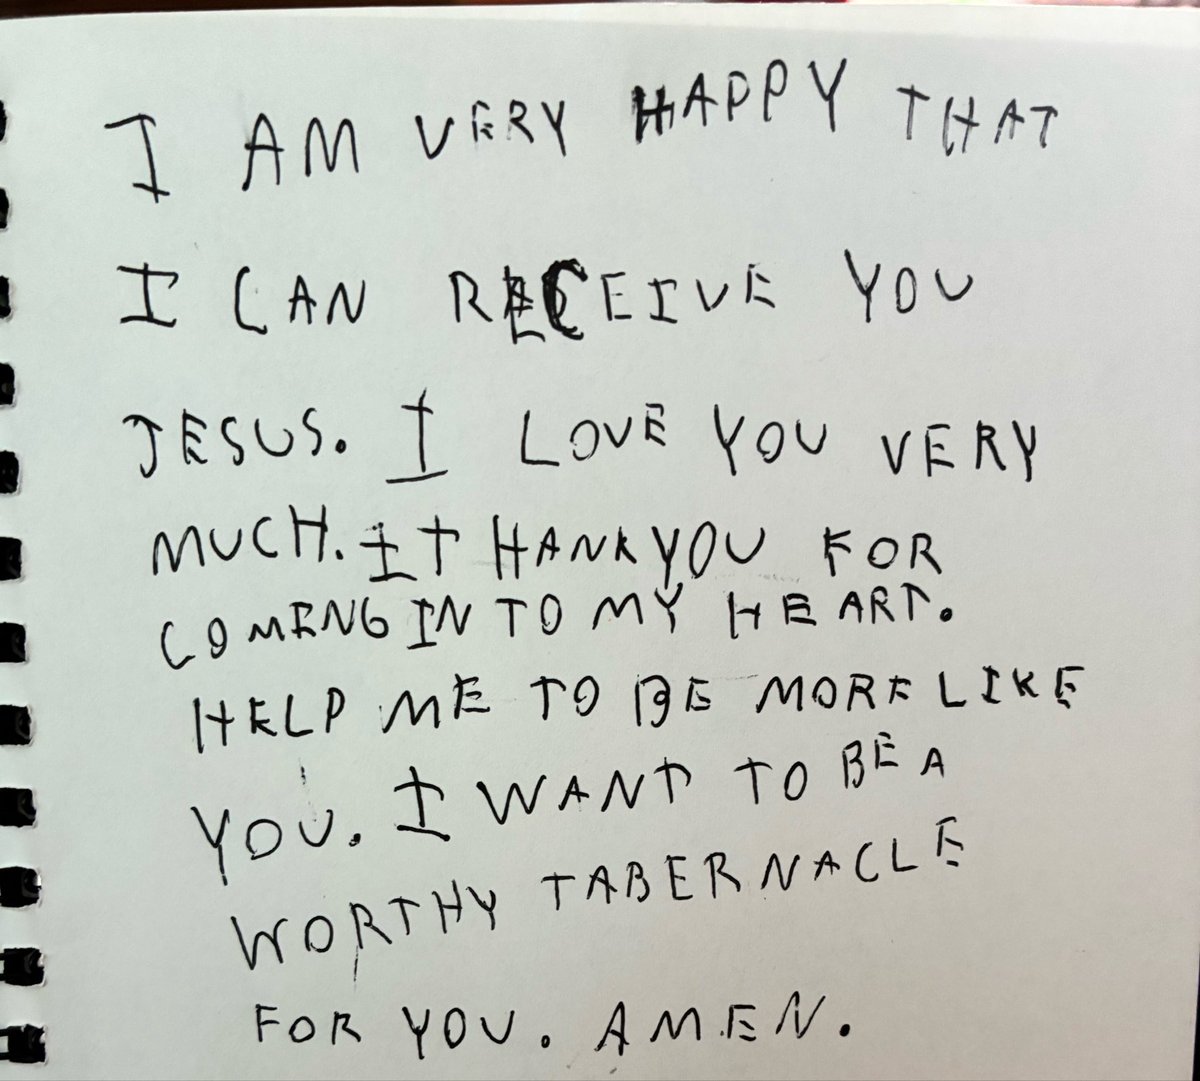 I AM VERY HAPPY THAT
I CAN RECEIVE YOU
JESUS. I LOVE YOU VERY
MUCH. I THANK YOU FOR
COMENG IN TO MY HEART.
HELP ME TO BE MORE LIKE
YOU. I WANT TO BE A
WORTHY TABERNACLE
FOR YOU. AMEN.